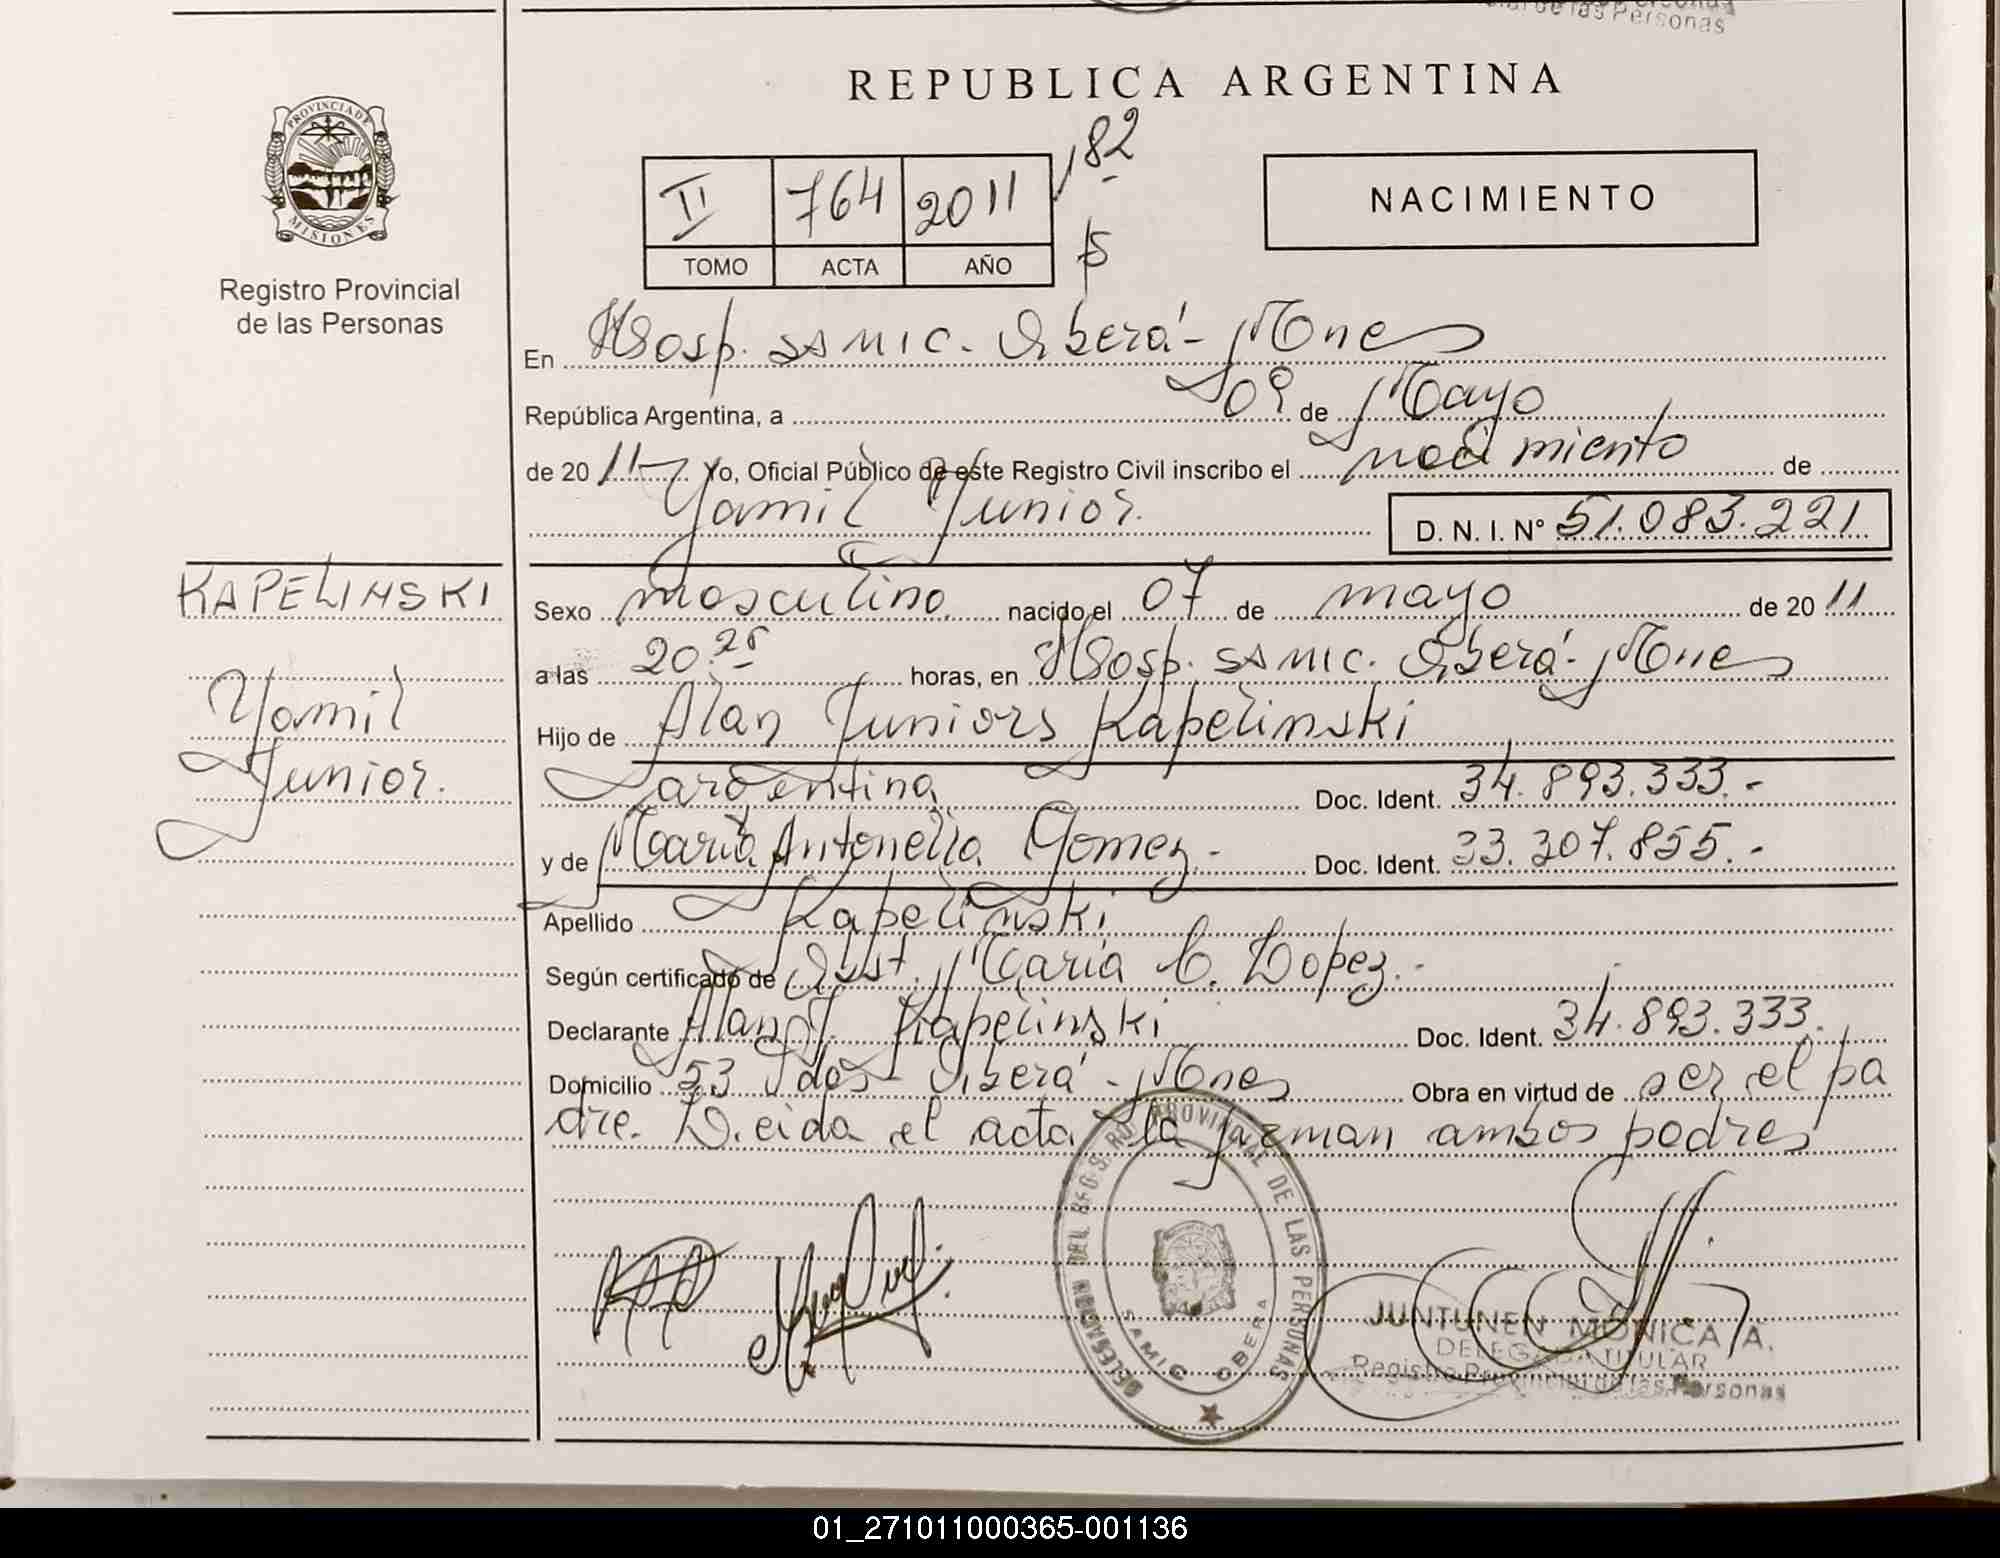 de las Personas
REPUBLICA ARGENTINA
PROVINCIA DE
MISIONES
Registro Provincial
de las Personas
II 764 2011 182
TOMO ACTA AÑO
NACIMIENTO
En Hosp. SAMIC. Oberá - Mnes
República Argentina, a 09 de Mayo
de 20 11 Yo, Oficial Público de este Registro Civil inscribo el nacimiento de
Yamil Junior. D. N. I. Nº 51.083.221
KAPELINSKI
Yamil
Junior.
Sexo masculino. nacido el 07 de mayo de 20 11
a las 20.25 horas, en Hosp. SAMIC. Oberá - Mnes
Hijo de Alan Juniors Kapelinski
argentina Doc. Ident. 34.893.333.-
y de Maria Antonella Gomez.- Doc. Ident. 33.307.855.-
Apellido Kapelinski
Según certificado de Obst. Maria C. Lopez.-
Declarante Alan J. Kapelinski Doc. Ident. 34.893.333.
Domicilio 53 vdas - Oberá - Mnes Obra en virtud de ser el pa
dre. Leida el acta la firman ambos padres
DELEGACION DEL REGISTRO PROVINCIAL DE LAS PERSONAS
SAMIC OBERA
JUNTUNEN MONICA A.
DELEGADA TITULAR
Registro Provincial de las Personas
01_271011000365-001136